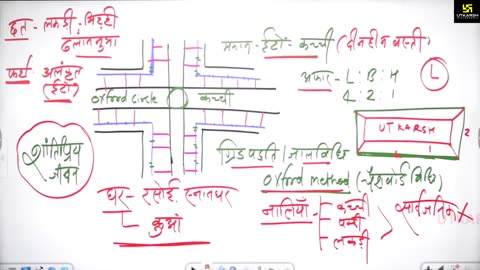 छत - लकड़ी, मिट्टी
ढलाननुमा
फर्श अलंकृत
(ईटों)
शांतिप्रिय
जीवन
घर - रसोई, स्नानघर
कुआं
oxford circle
कच्ची
मकान - ईटों - कच्ची (दीनहीन बस्ती)
आकार - L : B : H
4 : 2 : 1
L
UTKARSH
2
ग्रिड पद्धति / जालविधि
oxford method (- चैसबोर्ड विधि)
नालियाँ
कच्ची
पक्की
लकड़ी
सार्वजनिक X
UTKARSH